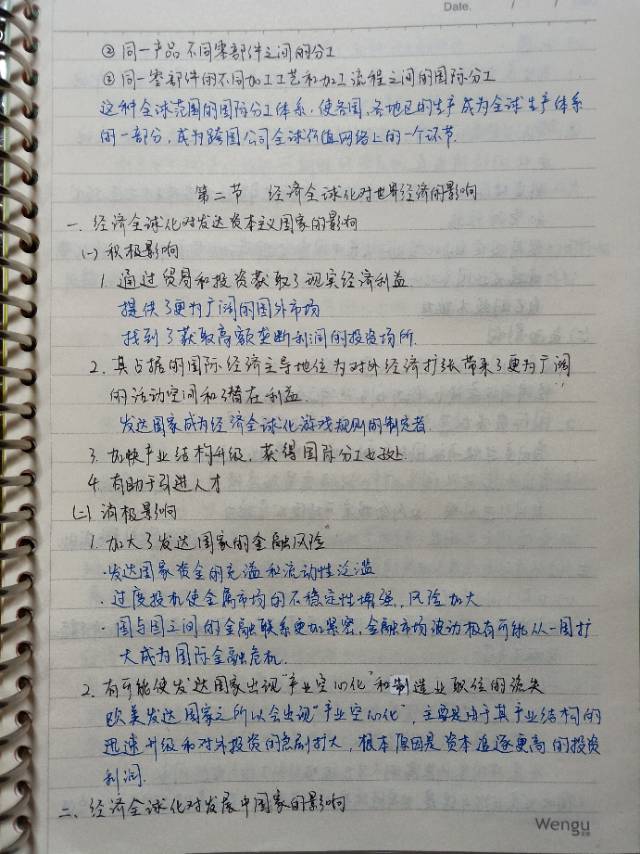 Date.
② 同一产品不同零部件之间的分工
③ 同一零部件的不同加工工艺和加工流程之间的国际分工
这种全球范围的国际分工体系,使各国、各地区的生产成为全球生产体系
的一部分,成为跨国公司全球价值网络上的一个环节.
第二节 经济全球化对世界经济的影响
一、经济全球化对发达资本主义国家的影响
(一) 积极影响
1. 通过贸易和投资获取了现实经济利益
提供了更为广阔的国外市场
找到了获取高额垄断利润的投资场所.
2. 其占据的国际经济主导地位为对外经济扩张带来了更为广阔
的活动空间和潜在利益
发达国家成为经济全球化游戏规则的制定者.
3. 加快产业结构升级,获得国际分工好处
4. 有助于引进人才
(二) 消极影响
1. 加大了发达国家的金融风险
·发达国家资金的充溢和流动性泛滥
·过度投机使金属市场的不稳定性增强,风险加大
·国与国之间的金融联系更加紧密,金融市场波动极有可能从一国扩
大成为国际金融危机.
2. 有可能使发达国家出现"产业空心化"和制造业职位的流失
欧美发达国家之所以会出现"产业空心化",主要是由于其产业结构的
迅速升级和对外投资的急剧扩大,根本原因是资本追逐更高的投资
利润.
二、经济全球化对发展中国家的影响
Wengu